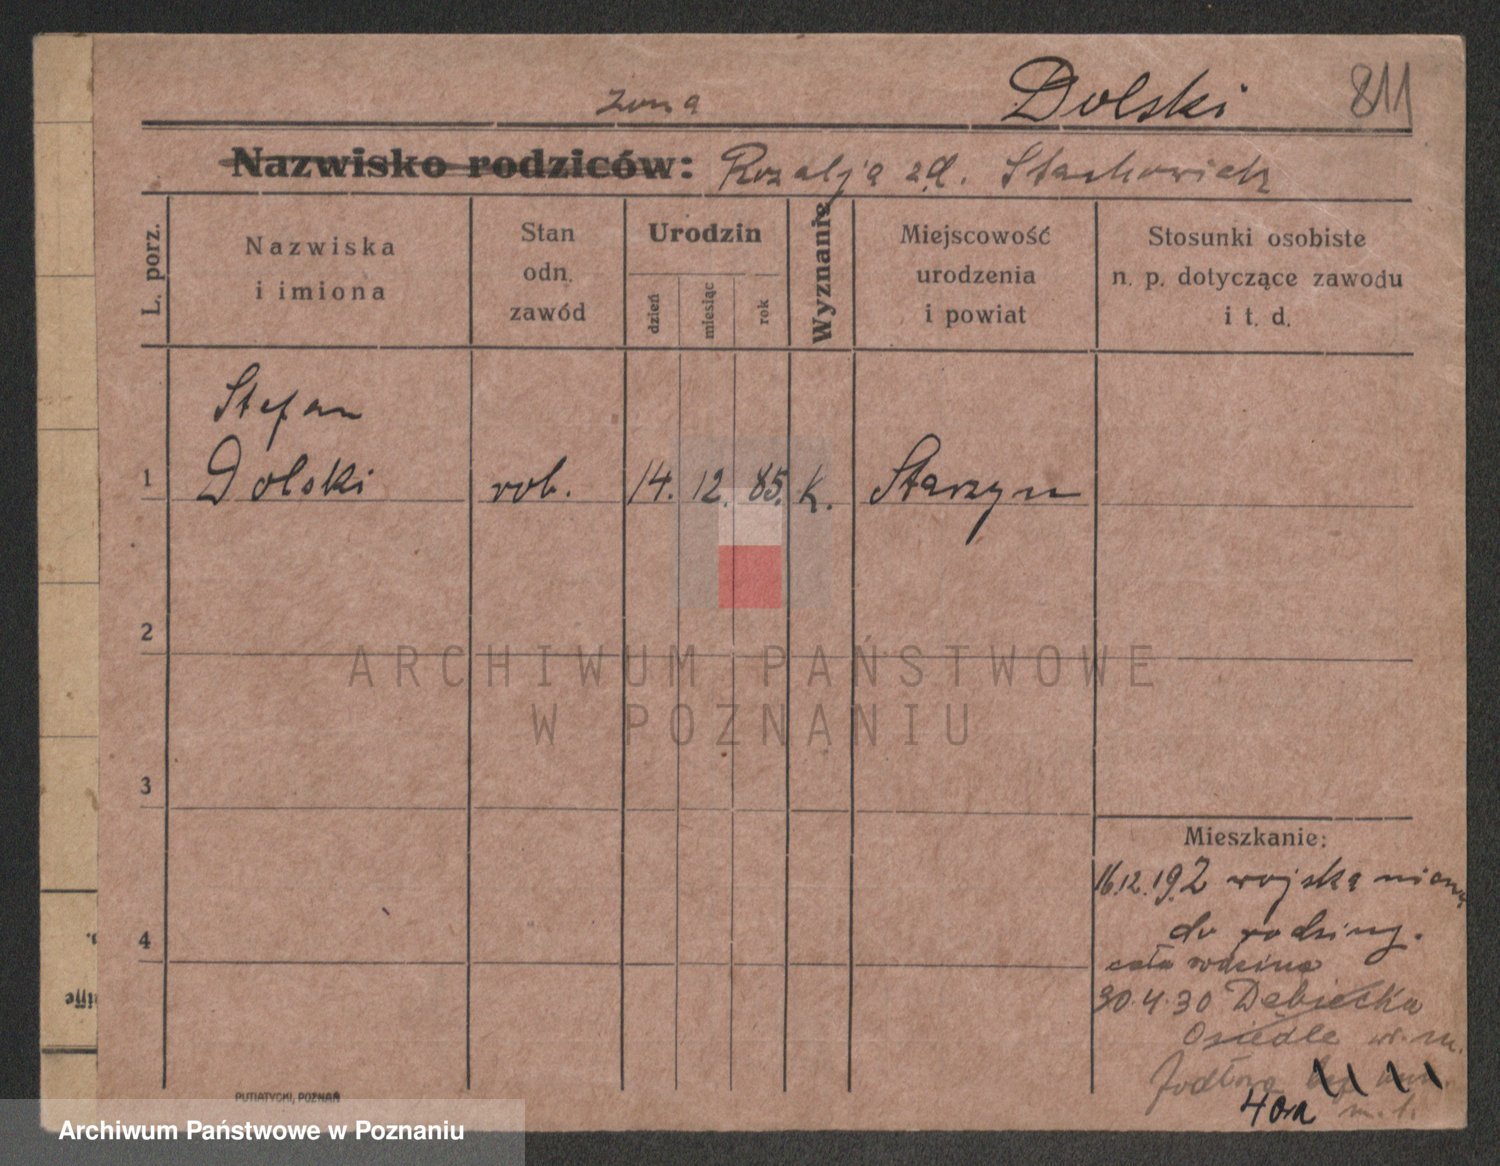 żona Dolski 811
Nazwisko rodziców: Rozalja zd. Stachowiak
L. porz.
Nazwiska
i imiona
Stan
odn.
zawód
Urodzin
dzień
miesiąc
rok
Wyznanie
Miejscowość
urodzenia
i powiat
Stosunki osobiste
n. p. dotyczące zawodu
i t. d.
Stefan
1 Dolski rob. 14. 12. 85. K.
2
3
4
Mieszkanie:
16.12.192 wojska
do rodziny.
cała rodzina
30.4.30 Dębiecka
Osiedle
Jodłowa
m. 1.
PUTIATYCKI, POZNAŃ
ARCHIWUM PAŃSTWOWE
W POZNANIU
Archiwum Państwowe w Poznaniu